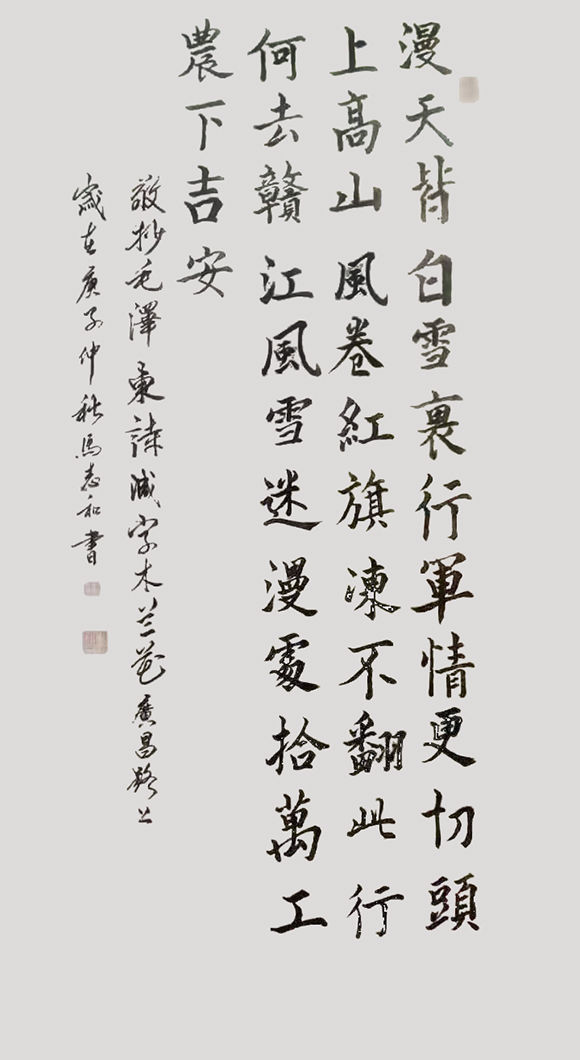 漫天皆白雪裏行軍情更切頭
上高山風卷紅旗凍不翻此行
何去贛江風雪迷漫處拾萬工
農下吉安
敬抄毛澤東詩減字木兰花廣昌路上
歲在庚子仲秋馬志和書